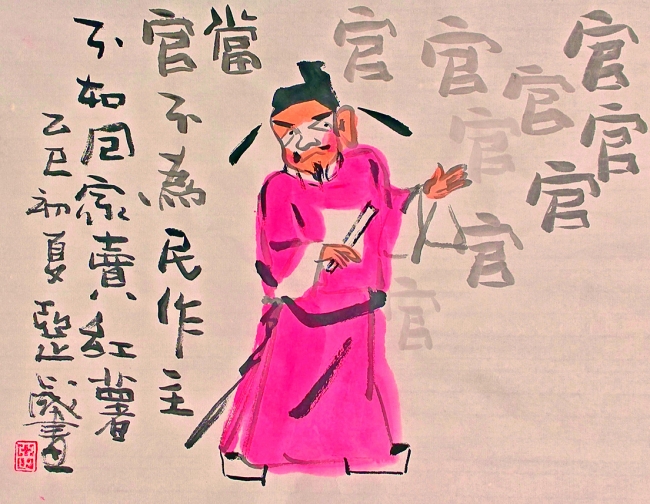 官
官
官
官
官
官
官
官
官
當
官不為民作主
不如回家賣紅薯
乙巳初夏